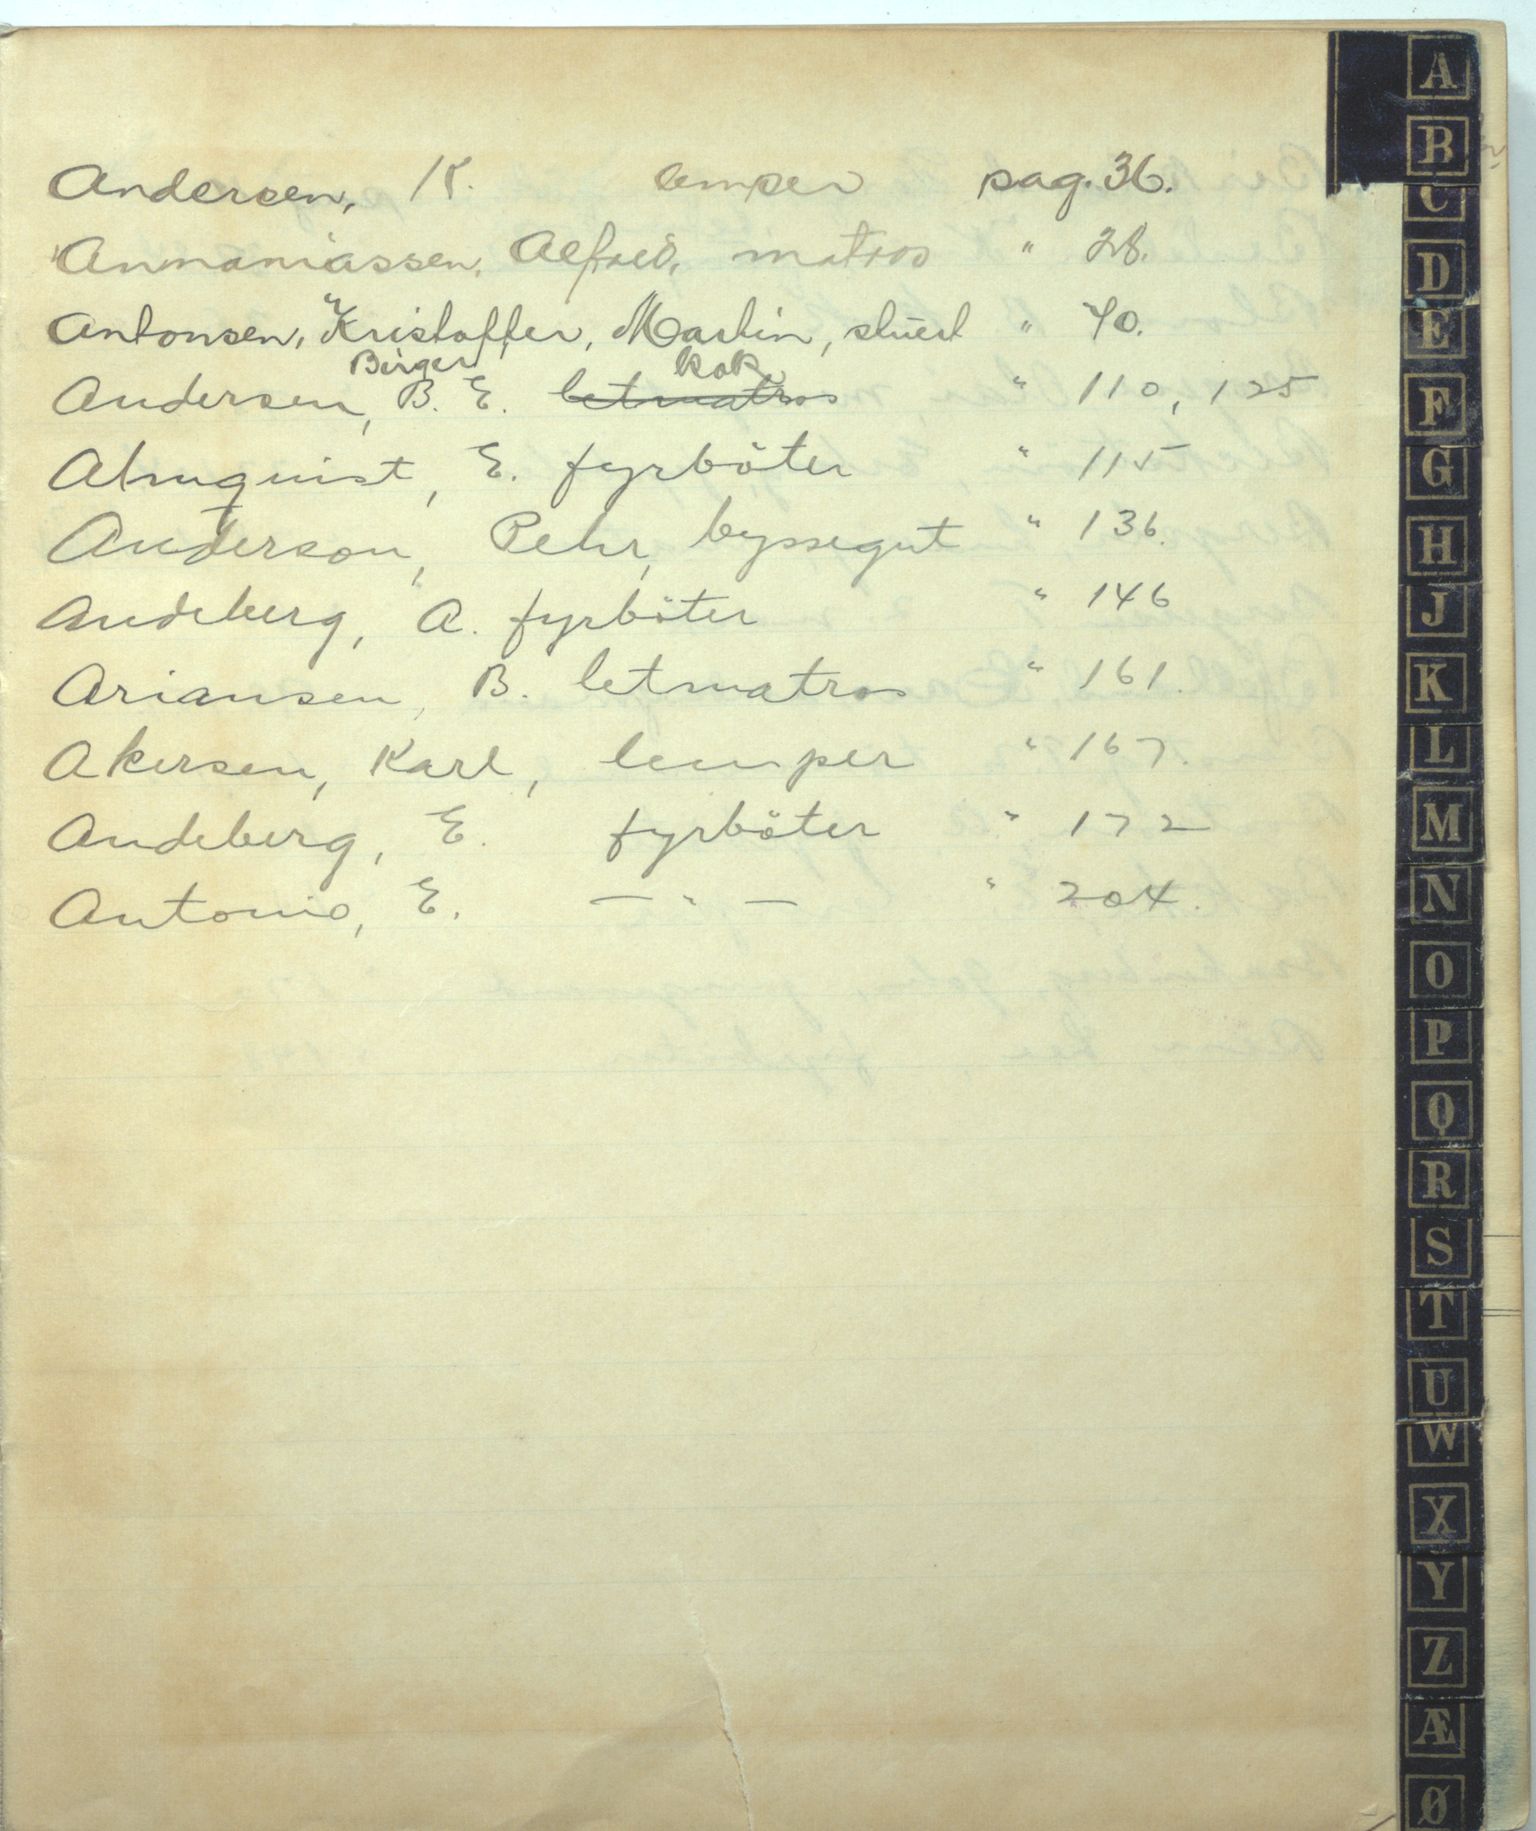 Andersen, K. lemper pag. 36.
Annaniassen, Alfred, matros " 28.
Antonsen, Kristoffer, Martin, stuert " 70.
Birger kok
Andersen, B. E. letmatros " 110, 125
Almquist, E. fyrböter " 115
Anderson, Pehr, byssegut " 136.
Andeberg, A. fyrböter " 146
Ariansen, B. letmatros " 161.
Akersen, Karl, lemper " 167.
Andeberg, E. fyrböter " 172
Antonio, E. — " — " 204.
A
B
C
D
E
F
G
H
J
K
L
M
N
O
P
Q
R
S
T
U
W
X
Y
Z
Æ
Ø